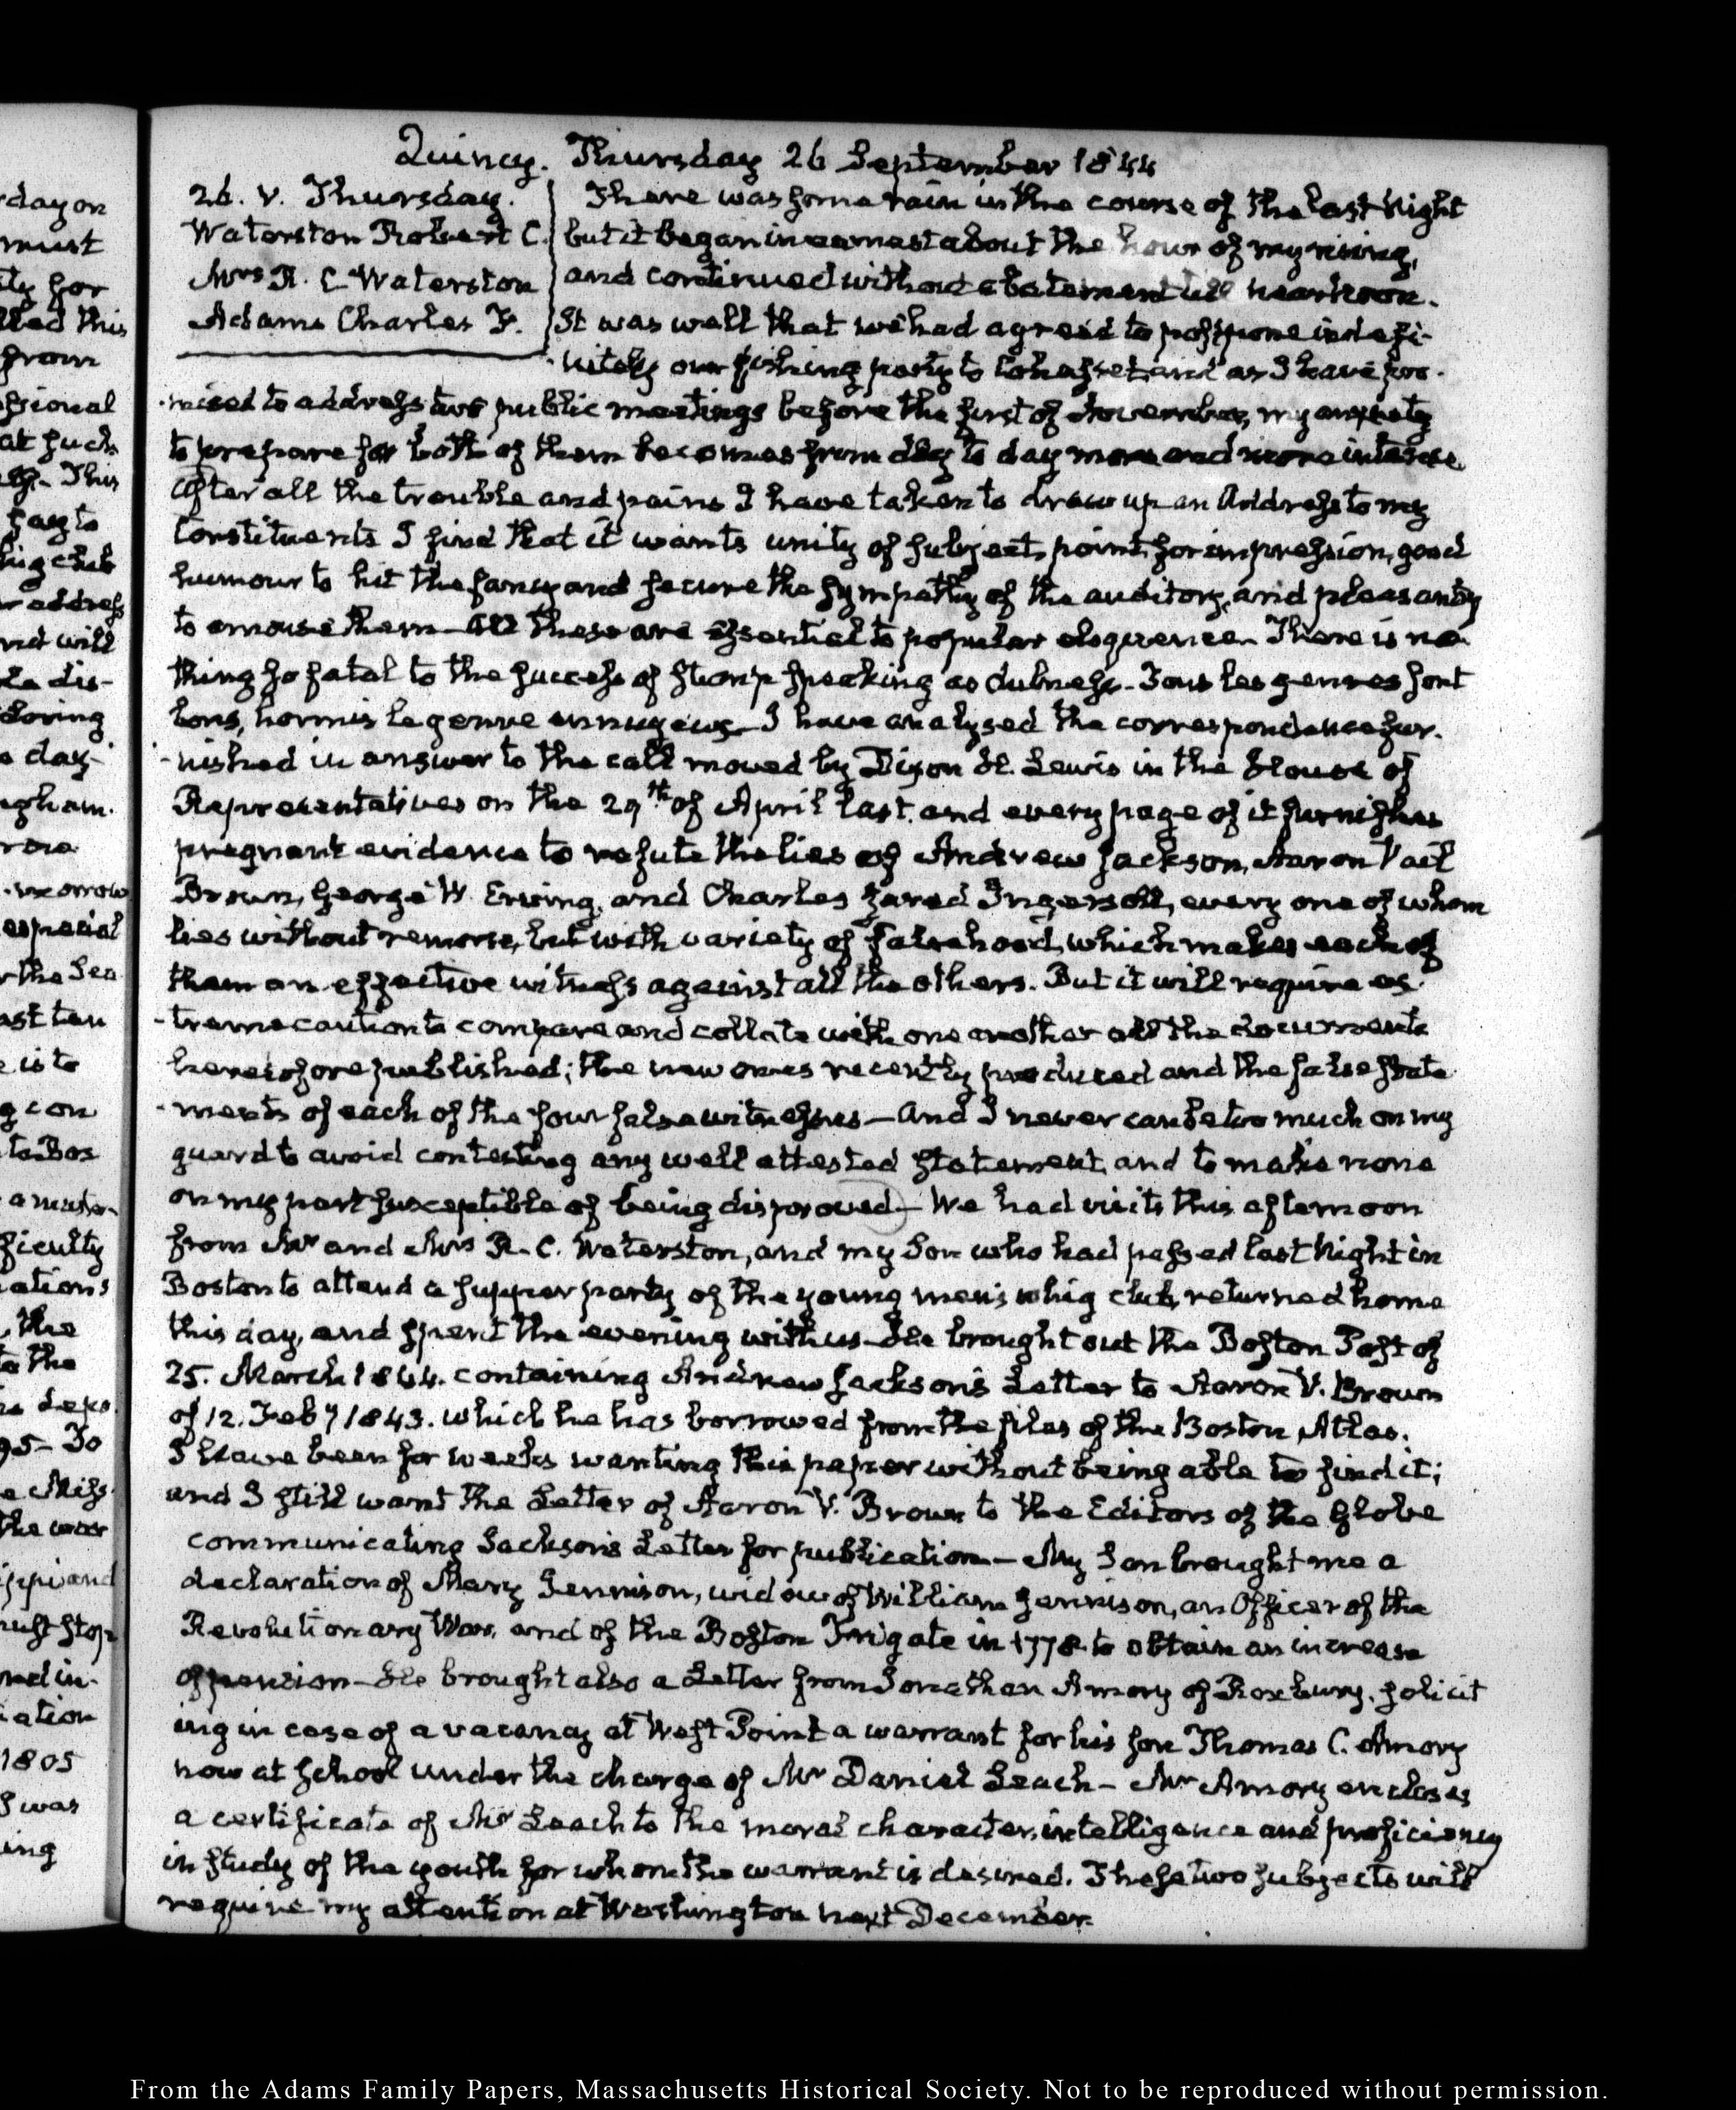 Quincy. Thursday 26 September 1844
26. V. Thursday.
Waterston Robert C.
Mrs R. C Waterston
Adams Charles F.
There was some rain in the course of the last Night
but it began in earnest about the hour of my rising,
and continued without abatement till near noon.
It was well that we had agreed to postpone indefi-
-nitely our fishing party to Cohasset and as I have pro-
-mised to address two public meetings before the first of November, my anxiety
to prepare for both of them becomes from day to day more and more intense.
After all the trouble and pains I have taken to draw up an Address to my
Constituents I find that it wants unity of subject, point for impression, good
humour to hit the fancy and secure the sympathy of the auditory, and pleasantry
to amuse them—All these are essential to popular eloquence. There is no
thing so fatal to the success of stump speaking as dulness. Tous les genres sont
bons, hormis le genre ennuyeux. I have analysed the correspondence fur-
-nished in answer to the call moved by Dixon H. Lewis in the House of
Representatives on the 29th of April last, and every page of it furnishes
pregnant evidence to refute the lies of Andrew Jackson, Aaron Vail
Brown, George W. Erving, and Charles Jared Ingersoll, every one of whom
lies without remorse, but with variety of falsehood, which makes each of
them an effective witness against all the others. But it will require ex-
-treme caution to compare and collate with one another all the documents
heretofore published; the new ones recently produced and the false state
-ments of each of the four false witnesses—And I never can be too much on my
guard to avoid contesting any well attested statement, and to make none
on my part susceptible of being disproved—We had visits this afternoon
from Mr and Mrs R. C. Waterston, and my Son who had passed last Night in
Boston to attend a supper party of the young men's whig club, returned home
this day, and spent the evening with us—He brought out the Boston Post of
25. March 1844. containing Andrew Jackson's Letter to Aaron V. Brown
of 12. Feby 1843. which he has borrowed from the files of the Boston Atlas.
I have been for weeks wanting this paper without being able to find it;
and I still want the Letter of Aaron V. Brown to the Editors of the Globe
communicating Jackson's Letter for publication—My Son brought me a
declaration of Mary Jennison, widow of William Jennison, an Officer of the
Revolutionary War, and of the Boston Frigate in 1778. to obtain an increase
of pension—He brought also a Letter from Jonathan Amory of Roxbury. solicit
ing in case of a vacancy at West Point a warrant for his son Thomas C. Amory
now at school under the charge of Mr Daniel Leach—Mr Amory encloses
a certificate of Mr Leach to the moral character, intelligence and proficiency
in study of the youth for whom the warrant is desired. These two subjects will
require my attention at Washington next December.
From the Adams Family Papers, Massachusetts Historical Society. Not to be reproduced without permission.